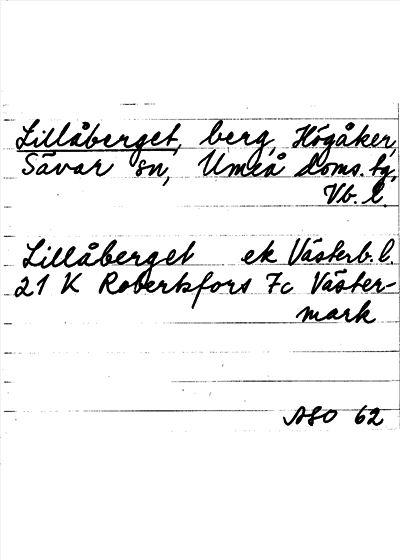 Lillåberget, berg, Högåker,
Sävar sn, Umeå doms. tg,
Vb. l.
Lillåberget ek Västerb. l.
21 K Robertsfors 7c Väster-
mark
ASO 62